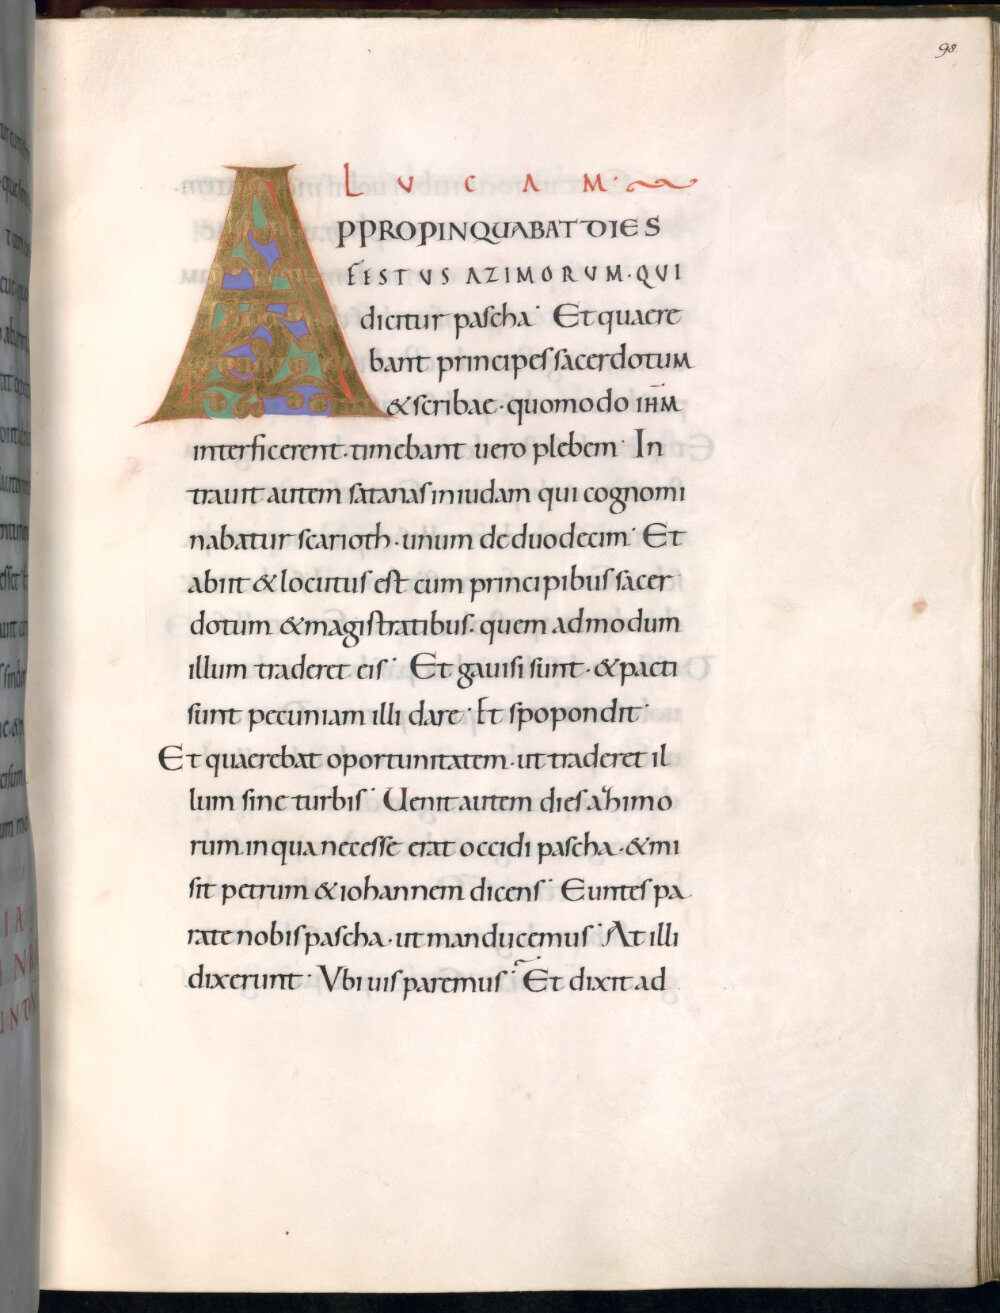 98
LUCAM
APPROPINQUABAT DIES
FESTUS AZIMORUM · QUI
dicitur pascha · Et quaere
bant principes sacerdotum
& scribae · quomodo ihm
interficerent · timebant uero plebem · In
trauit autem satanas in iudam qui cognomi
nabatur scarioth · unum de duodecim · Et
abiit & locutus est cum principibus sacer
dotum & magistratibus · quem ad modum
illum traderet eis · Et gauisi sunt · & pacti
sunt pecuniam illi dare · Et spopondit ·
Et quaerebat oportunitatem · ut traderet il
lum sine turbis · Uenit autem dies azimo
rum · in qua necesse erat occidi pascha · & mi
sit petrum & iohannem dicens · Euntes pa
rate nobis pascha · ut manducemus · At illi
dixerunt · Vbi uis paremus · Et dixit ad